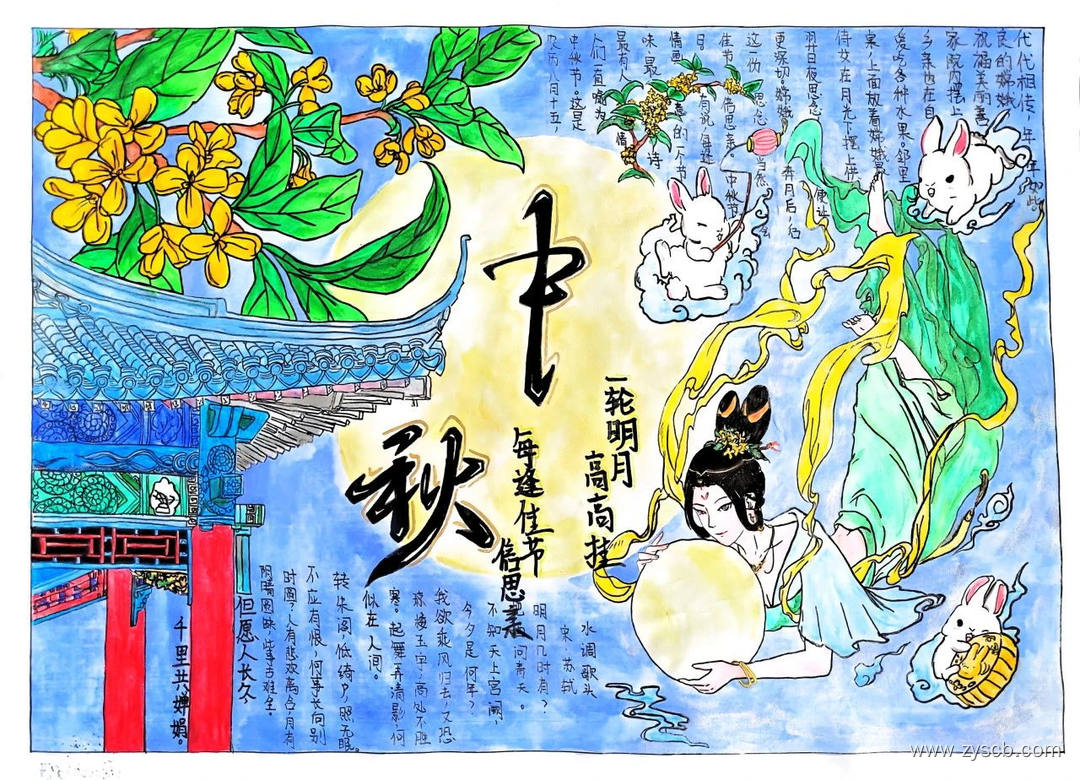 农历八月十五，
中秋节。这是
人们一直喻为
最有人情
味、最诗
情画意的一个节
日有说，每逢
佳节倍思亲。中秋节
这份思念当然会
更深切。嫦娥奔月后，后
羿日夜思念便让
侍女在月光下摆上供
案，上面放着嫦娥最
爱吃各种水果。邻里
乡亲也在自
家院内摆上
祝福美丽善
良的嫦娥
代代相传，年年如此
中
秋
一轮明月
高高挂
每逢佳节
倍思亲
水调歌头
宋·苏轼
明月几时有？
把酒问青天。
不知天上宫阙，
今夕是何年？
我欲乘风归去，又恐
琼楼玉宇，高处不胜
寒。起舞弄清影，何
似在人间。
转朱阁，低绮户，照无眠。
不应有恨，何事长向别
时圆？人有悲欢离合，月有
阴晴圆缺，此事古难全。
但愿人长久
千里共婵娟。
www.zyscb.com